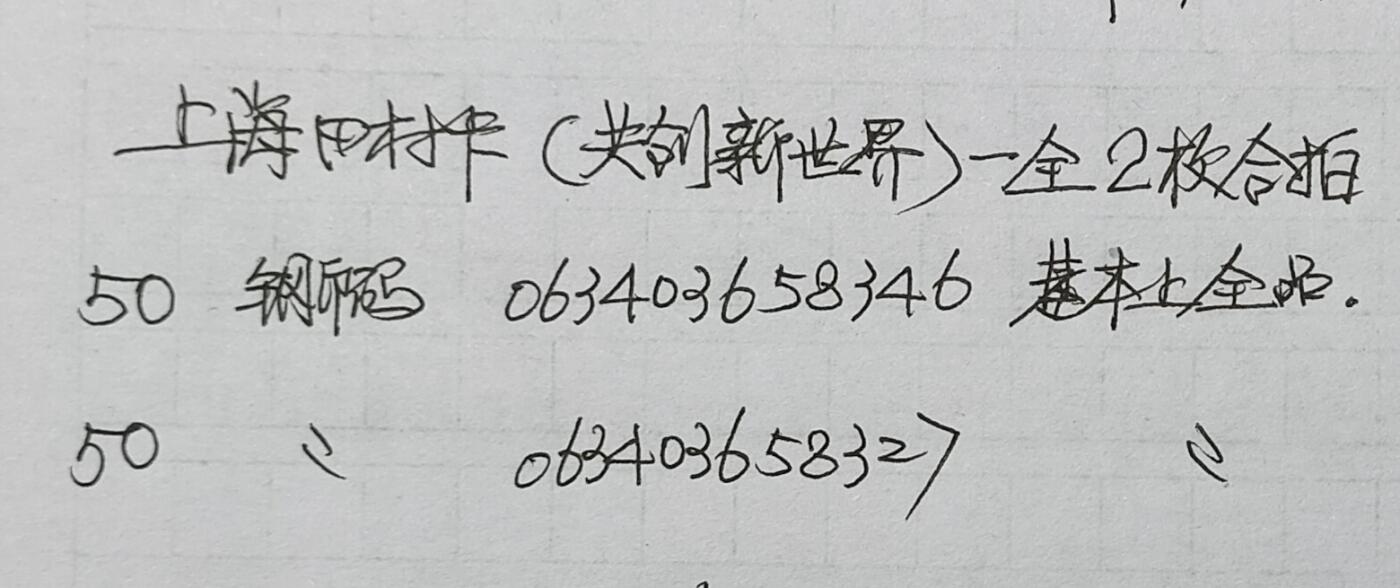 上海田村卡(共创新世界)一全2枚合拍
50 钢印码 063403658346 基本上全品.
50 〃 063403658327 〃